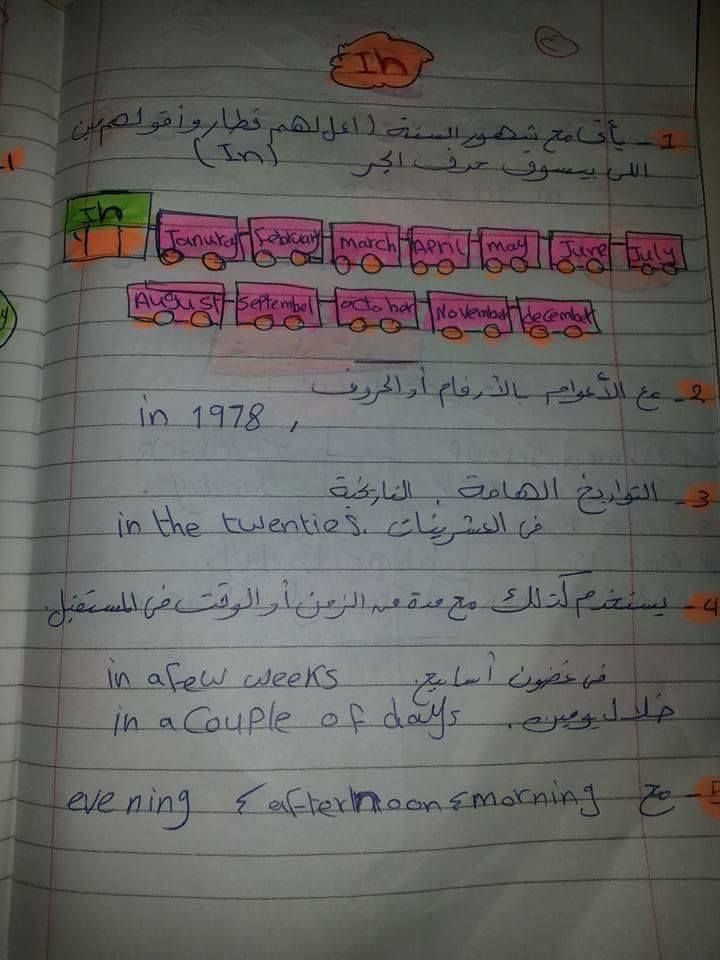 In
1 - يأتى مع شهور السنة (اعمل لهم قطار وأقولهم مين
اللى بيسوق حرف الجر (In)
In
Januray February march April may June July
August September october November december
2 - مع الأعوام بالأرقام أو الحروف
in 1978 ,
3 - التواريخ الهامة . التاريخية
in the twenties. فى العشرينات
4 - يستخدم كذلك مع مدة من الزمن أو الوقت فى المستقبل.
in a few weeks فى غضون أسابيع.
in a couple of days . خلال يومين
5 - مع morning & afternoon & evening